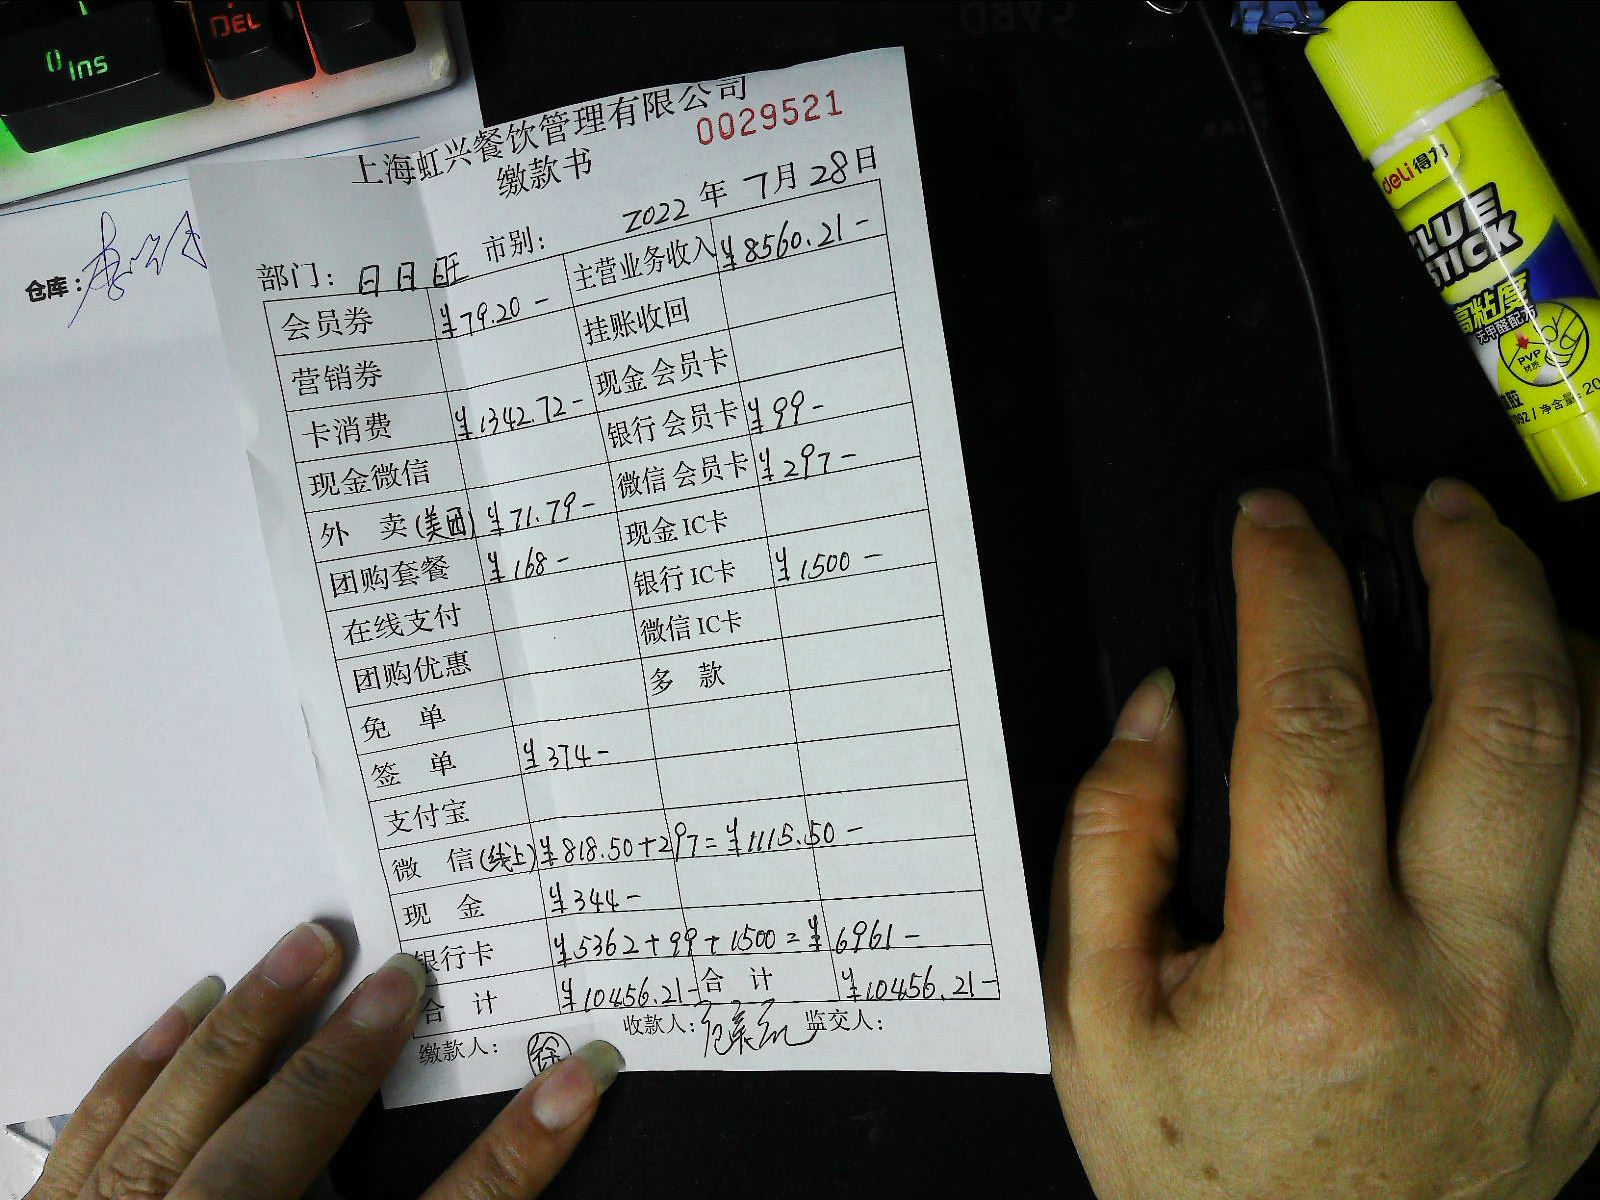 0 Ins
DEL
上海虹兴餐饮管理有限公司
0029521
缴款书
2022 年 7月 28日
部门： 日日旺 市别：
会员券 ¥79.20- 主营业务收入 ¥8560.21-
营销券 挂账收回
卡消费 ¥1342.72- 现金会员卡
现金微信 银行会员卡 ¥99-
外 卖(美团) ¥71.79- 微信会员卡 ¥297-
团购套餐 ¥168- 现金IC卡
在线支付 银行IC卡 ¥1500-
团购优惠 微信IC卡
免 单 多 款
签 单 ¥374-
支付宝
微 信(线上) ¥818.50+297=¥1115.50-
现 金 ¥344-
银行卡 ¥5362+99+1500=¥6961-
合 计 ¥10456.21- 合 计 ¥10456.21-
缴款人： 徐 收款人： 监交人：
仓库：
deli得力
GLUE
STICK
高粘度
无甲醛配方
PVP
材质
净含量: 20